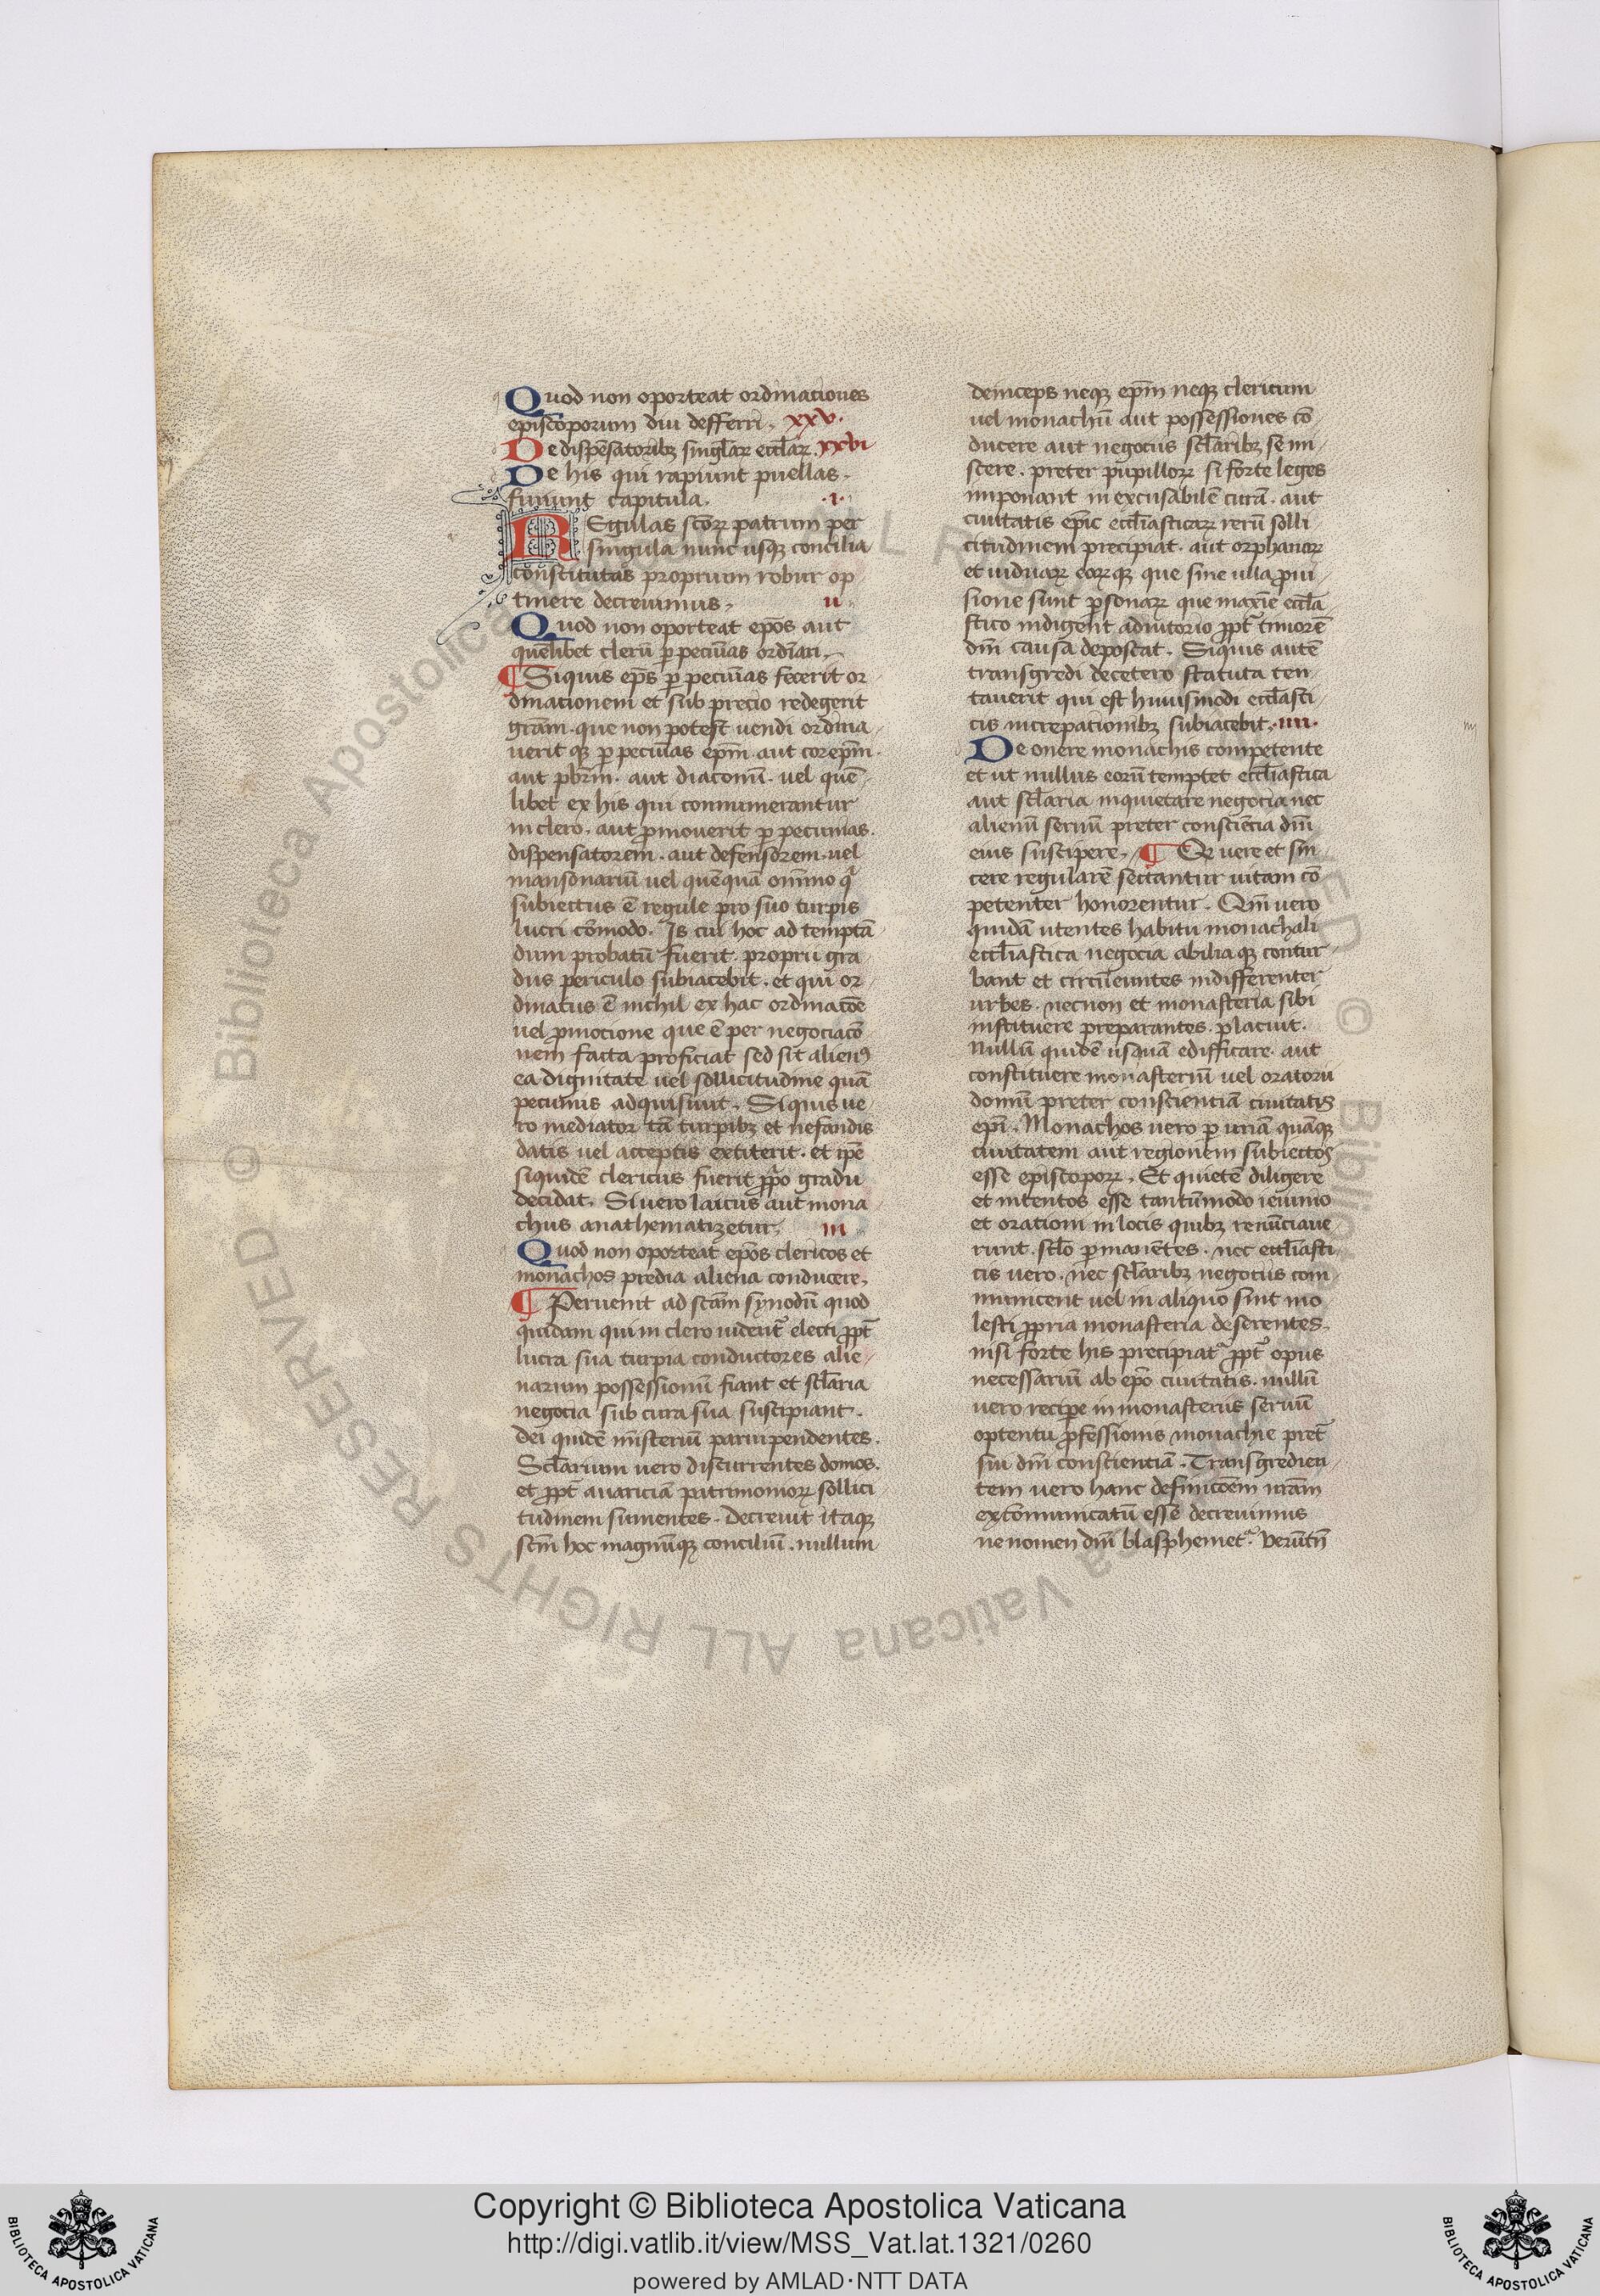 Quod non oporteat ordinationes
episcoporum diu defferri. xxv.
De dispēsatoribꝫ singl̄aꝝ eccl̄aꝝ. xxvi
De his qui rapiunt puellas.
finiunt capitula. .i.
REgulas scōꝝ patrum per
singula nunc usqꝫ concilia
constitutas proprium robur op
tinere decreuimus. ii
Quod non oporteat ep̄os aut
quēlibet clerū ꝑ pecūias ordīari.
¶ Siquis ep̄s ꝑ pecūias fecerit or
dinationem et sub precio redegerit
grām. que non potest uendi ordina
uerit qꝫ ꝑ pecūias ep̄m. aut corep̄m.
aut pbr̄m. aut diaconū. uel quē
libet ex his qui connumerantur
in clero. aut ꝓmouerit ꝑ pecunias.
dispensatorem. aut defensorem. uel
mansonariū uel quēquā om̄ino q
subiectus ē regule pro suo turpis
lucri cōmodo. Is cui hoc ad temptā
dum probatū fuerit. proprii gra
dus periculo subiacebit. et qui or
dinatus ē nichil ex hac ordinacōe
uel ꝓmocione que ē per negociacō
nem facta proficiat sed sit alienꝰ
ea dignitate uel sollicitudine quā
pecuniis adquisiuit. Si quis ue
ro mediator tā turpibꝫ et nefandis
datis uel acceptis extiterit. et ip̄e
siquidē clericus fuerit ꝓpo gradu
decidat. Si uero laicus aut mona
chus anathematizetur. iii
Quod non oporteat ep̄os clericos et
monachos predia aliena conducere.
¶ Peruenit ad scām synodū quod
quidam qui in clero uident᷑ electi ꝓpt̄
lucra sua turpia conductores alie
narum possessionū fiant et scl̄aria
negocia sub cura sua suscipiant.
dei quidē mīsteriū paruipendentes.
Scl̄arium uero discurrentes domos.
et ꝓpt̄ auariciā patrimonioꝝ sollici
tudinem sumentes. Decreuit itaqꝫ
scm̄ hoc magnūqꝫ conciliū. nullum
deinceps neqꝫ ep̄m neqꝫ clericum
uel monachū aut possessiones cō
ducere aut negociis scl̄aribꝫ se mi
scere. preter pupilloꝝ si forte leges
imponant in excusabilē curā. aut
ciuitatis ep̄ic eccl̄iasticaꝝ rerū solli
citudinem precipiat. aut orphanoꝝ
et uiduaꝝ eaꝝqꝫ que sine ulla ꝓui
sione sunt ꝑsonaꝝ que maxīe eccl̄a
stico indigent adiutorio ꝓpt̄ timorē
dn̄i causa deposcat. Siquis autē
transgredi decetero statuta ten
tauerit qui est huiusmodi eccl̄asti
cis increpationibꝫ subiacebit. iiii.
De onere monachis competente
et ut nullus eorū temptet eccl̄iastica
aut scl̄aria inquietare negocia nec
alienū seruū preter consciēcia dn̄i
eius suscipere. ¶ Qꝛ uere et sin
cere regularē sectantur uitam cō
petenter honorentur. Qm̄ uero
quidā utentes habitu monachali
eccl̄iastica negocia abilia qꝫ contur
bant et circūeuntes indifferenter
urbes. necnon et monasteria sibi
instituere preparantes. placuit.
Nullū quidē usquā edifficare. aut
constituere monasteriū uel oratorii
domū preter conscientiā ciuitatis
ep̄i. Monachos uero ꝑ unā quāqꝫ
ciuitatem aut regionem subiectos
esse episcopoꝝ. Et quietē diligere
et intentos esse tantūmodo ieiunio
et orationi in locis quibꝫ renūciaue
runt. scl̄o ꝑmanētes. nec eccl̄iasti
cis uero. nec scl̄aribꝫ negociis com
municent uel in aliquo sint mo
lesti ꝓpria monasteria deserentes.
nisi forte his precipiat᷑ ꝓpt̄ opus
necessariū ab ep̄o ciuitatis. nullū
uero recipe in monasteriis seruū
optentu ꝓfessionis monachie pret̄
sui dn̄i conscientiā. Transgredien
tem uero hanc definicōem nr̄am
excōmunicatū esse decreuimus
ne nomen dn̄i blasphemet᷑. Verūtn̄
© Biblioteca Apostolica Vaticana ALL RIGHTS RESERVED
Copyright © Biblioteca Apostolica Vaticana
http://digi.vatlib.it/view/MSS_Vat.lat.1321/0260
powered by AMLAD·NTT DATA
BIBLIOTECA APOSTOLICA VATICANA
BIBLIOTECA APOSTOLICA VATICANA